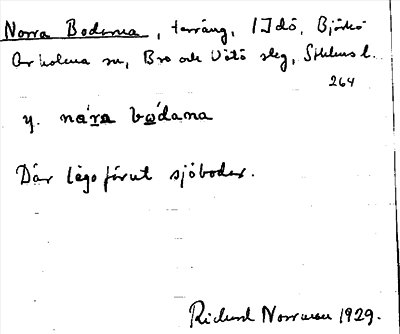 Norra Boderna, terräng, 1 Idö, Björkö
Arholma sn, Bro och Vätö skg, Sthlms l.
264
y. nɑ́ra bɷ́dana
Där lågo förut sjöbodar.
Rickard Norrman 1929.